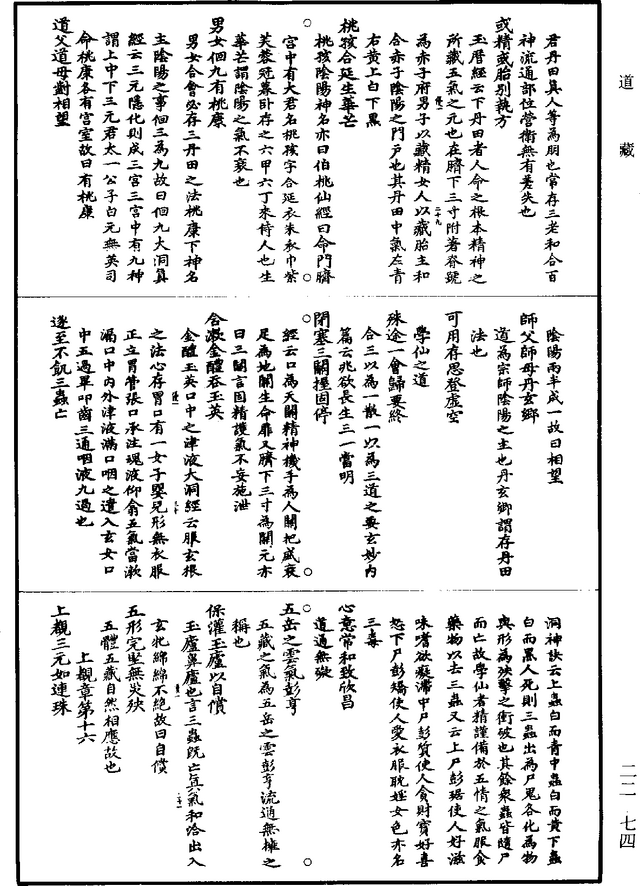 道藏
君丹田眞人等爲朋也常存三老和合百
神流通部位營衛無有差失也
或精或胎別執方
玉曆經云下丹田者人命之根本精神之
所藏五氣之元也在臍下三寸附著脊號
爲赤子府男子以藏精女人以藏胎主和
合赤子陰陽之門戶也其丹田中氣左青
右黄上白下黑
桃孩合延生華芒
桃孩陰陽神名亦曰伯桃仙經曰命門臍
宮中有大君名桃孩字合延衣朱衣巾紫
芙蓉冠暮卧存之六甲六丁來侍人也生
華芒謂陰陽之氣不衰也
男女佪九有桃康
男女合會必存三丹田之法桃康下神名
主陰陽之事佪三爲九故曰佪九大洞眞
經云三元隱化則成三宮三宮中有九神
謂上中下三元君太一公子白元無英司
命桃康各有宮室故曰有桃康
道父道母對相望
陰陽兩半成一故曰相望
師父師母丹玄鄉
道爲宗師陰陽之主也丹玄鄉謂存丹田
法也
可用存思登虛空
學仙之道
殊途一會歸要終
合三以爲一散一以爲三道之要玄妙内
篇云兆欲長生三一當明
閉塞三關握固停
經云口爲天關精神機手爲人關把盛衰
足爲地關生命扉又臍下三寸爲關元亦
曰三關言固精護氣不妄施泄
含漱金醴吞玉英
金醴玉英口中之津液大洞經云服玄根
之法心存胃口有一女子嬰兒形無衣服
正立胃管張口承注魂液仰翕五氣當漱
漏口中内外津液滿口咽之遣入玄女口
中五過畢叩齒三通咽液九過也
遂至不飢三蟲亡
洞神訣云上蟲白而青中蟲白而黄下蟲
白而黑人死則三蟲出爲尸鬼各化爲物
與形爲殃擊之衝破也其餘衆蟲皆隨尸
而亡故學仙者精謹備於五情之氣服食
藥物以去三蟲又云上尸彭琚使人好滋
味嗜欲癡滯中尸彭質使人貪財寳好喜
怒下尸彭矯使人愛衣服耽婬女色亦名
三毒
心意常和致欣昌
道通無礙
五岳之雲氣彭亨
五藏之氣爲五岳之雲彭亨流通無擁之
稱也
保灌玉廬以自償
玉廬鼻廬也言三蟲既亡眞氣和洽出入
玄牝綿綿不絶故曰自償
五形完堅無災殃
五體五藏自然相應故也
上覩章第十六
上覩三元如連珠
二二·七四